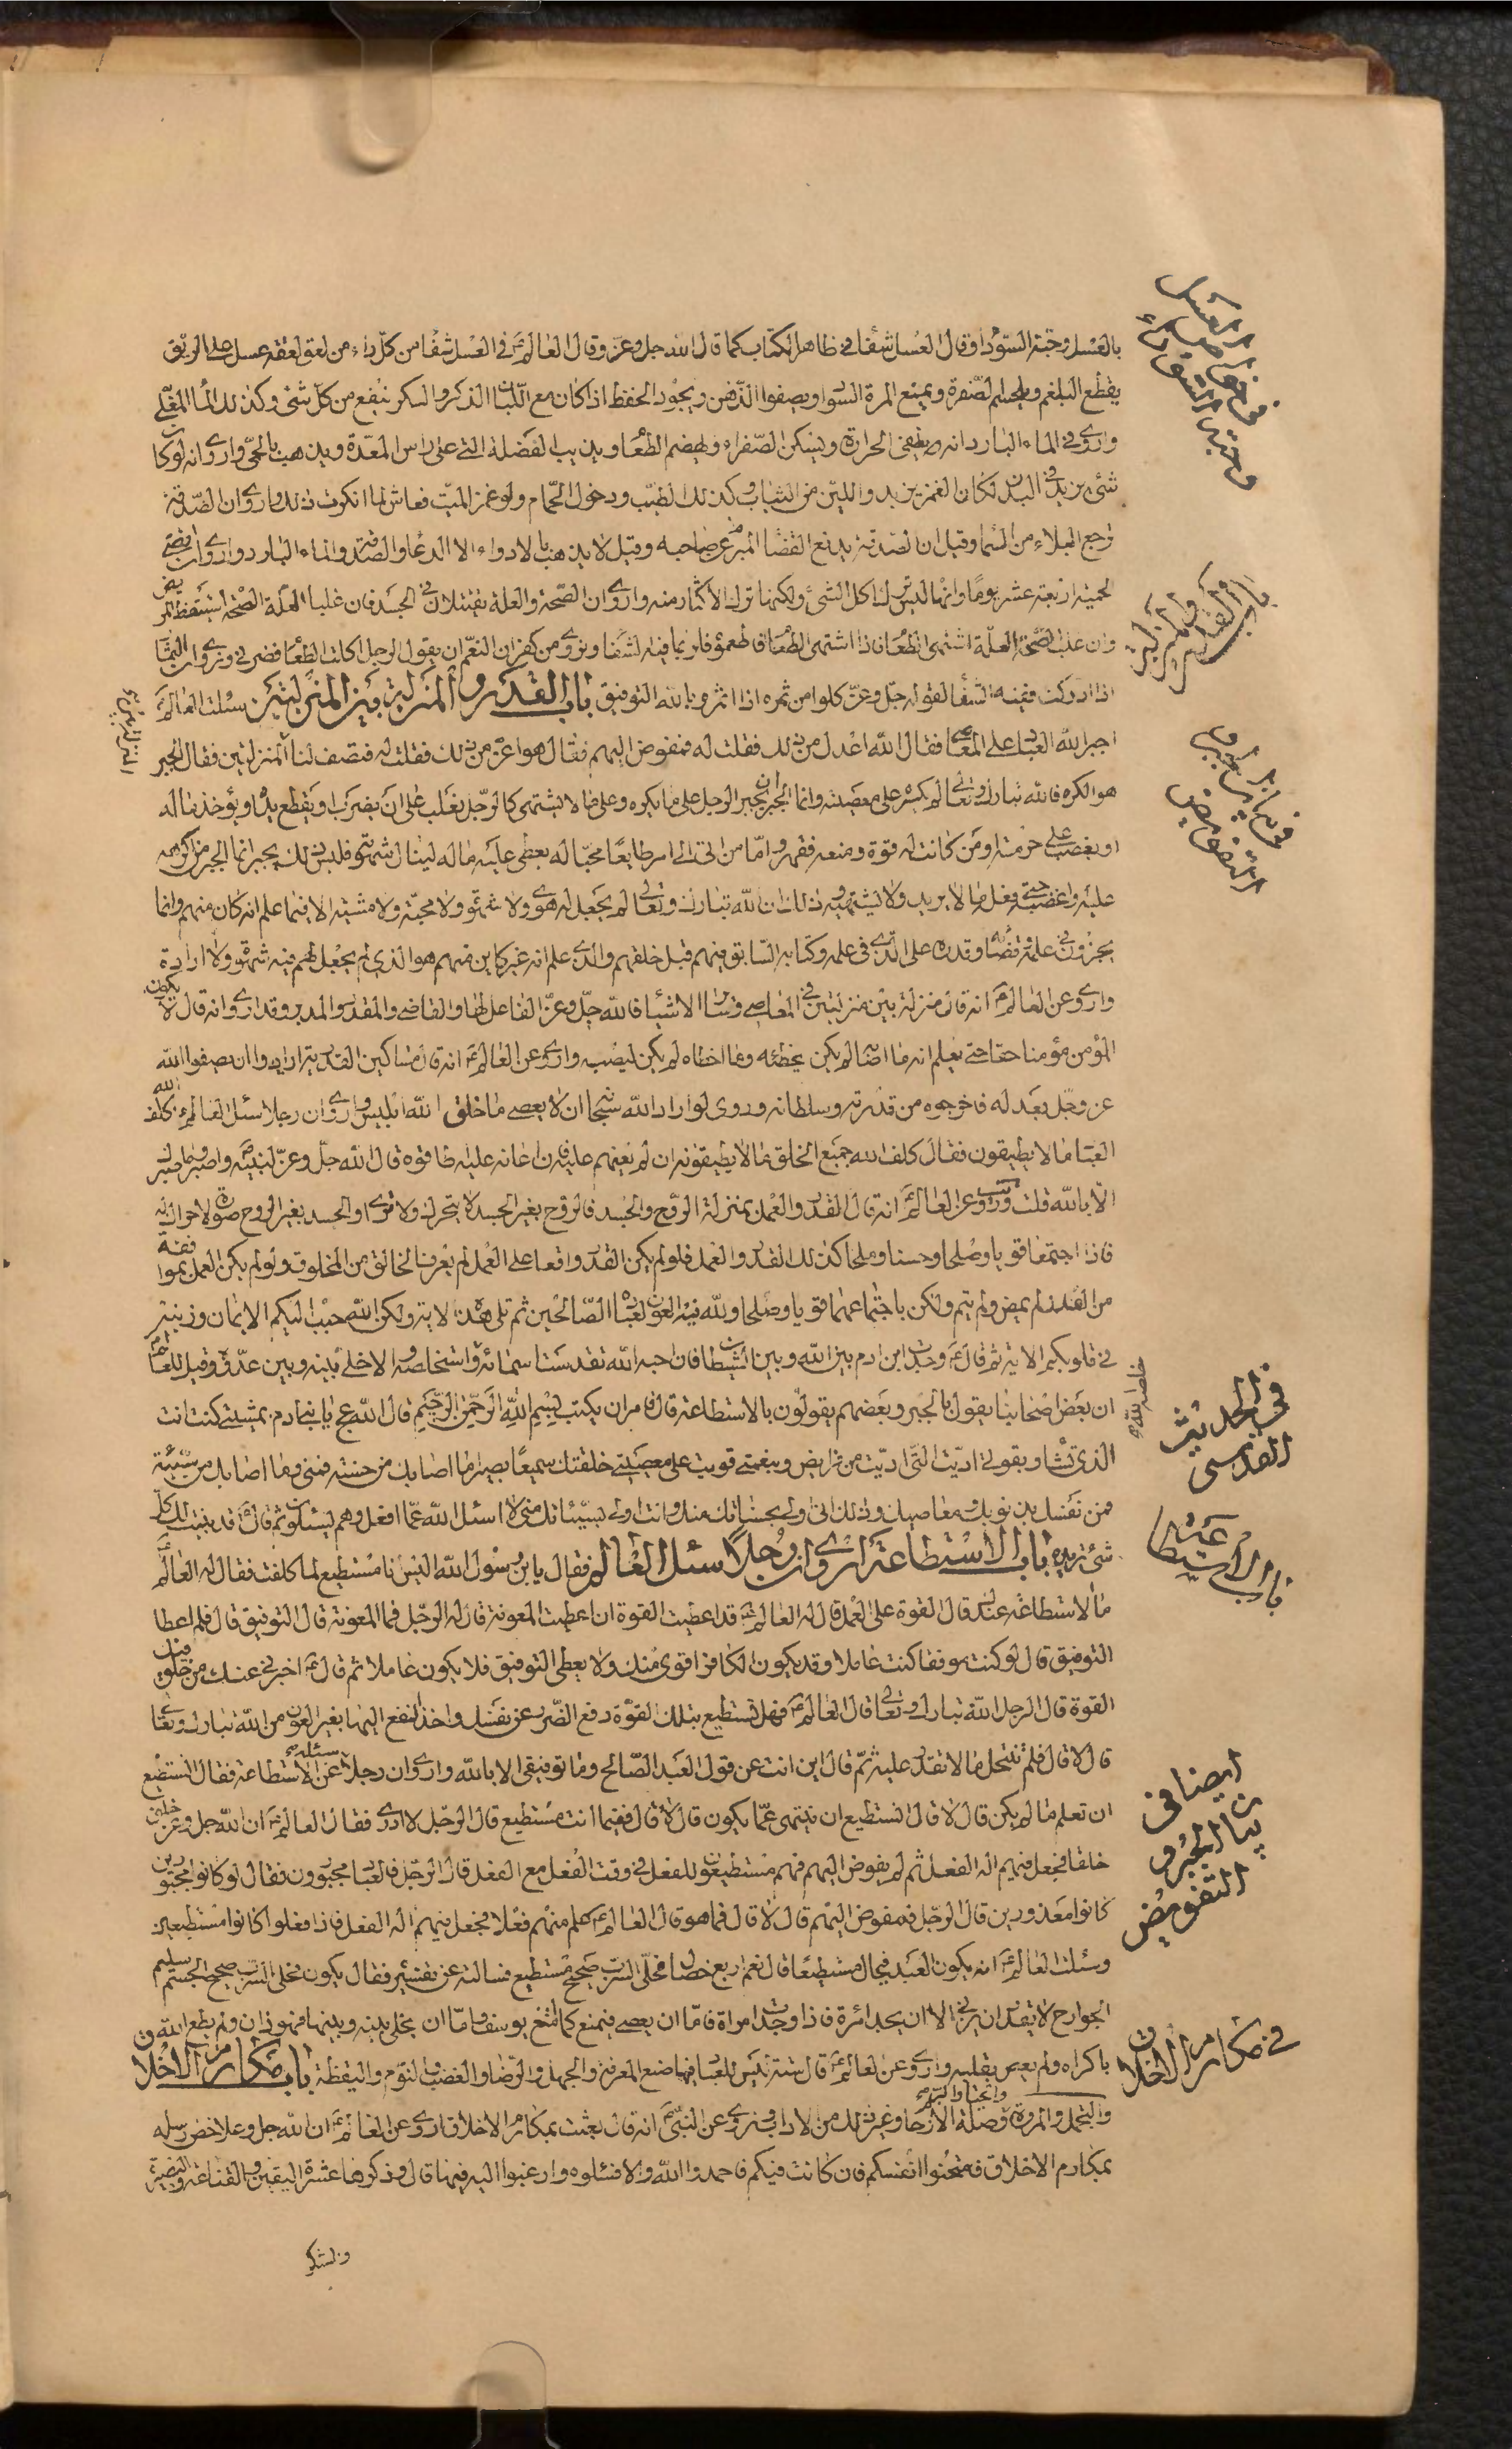 بالعسل وحبة السوداء وقال العسل شفاء في ظاهر الكتاب كما قال الله جل وعز وقال العالم ع في العسل شفا من كل داء من لعق لعقة عسل على الريق
يقطع البلغم ويحسم الصفرة ويمنع المرة السوا ويصفوا الذهن ويجود الحفظ اذا كان مع اللبان الذكر والسكر ينفع من كل شئ وكذلك الماء المغلي
واروي في الماء البارد انه يطفئ الحرارة ويسكن الصفراء ويهضم الطعا ويذيب الفضلة التي على راس المعدة ويذهب بالحمى واروي انه لو كا
شئ يزيد في البدن لكان الغمز يزيد واللين من الثياب وكذلك الطيب ودخول الحمام ولو غمز الميت فعاش لما انكرت ذلك واروي ان الصدقة
ترجع البلاء من السما وقيل ان الصدقة يدفع القضا المبرم عن صاحبه وقيل لا يذهب بالادواء الا الدعا والصدقة والماء البارد واروي ان اقصى
الحمية اربعة عشر يوما وانها ليس ترك اكل الشئ ولكنها ترك الاكثار منه واروي ان الصحة والعلة يقتتلان في الجسد فان غلبت العلة الصحة استيقظ المريض
وان غلبت الصحة العلة اشتهى الطعا فاذا اشتهى الطعا فاطعموه فلربما فيه الشفا ونروي من كفران النعم ان يقول الرجل اكلت الطعا فضرني ونروي ان الثما
اذا ادركت ففيه الشفا لقوله جل وعز كلوا من ثمره اذا اثمر وبالله التوفيق باب القدر والمنزلة بين المنزلتين سئلت العالم ع
اجبر الله العباد على المعا فقال الله اعدل من ذلك فقلت له فمفوض اليهم فقال هو اعز من ذلك فقلت له فتصف لنا المنزلتين فقال الجبر
هو الكره فالله تبارك وتعالى لم يكره على معصيته وانما الجبر ان يجبر الرجل على ما يكره وعلى ما لا يشتهى كالرجل يغلب على ان يضرب او يقطع يده او يؤخذ ماله
او يغصب على حرمته او من كانت له قوة ومنعة فقهر واما من اتى الى امر طائعا محبا له يعطى عليه ماله لينال شهوته فليس ذلك بجبر انما الجبر من اكرهه
عليه واغضب حتى فعل ما لا يريد ولا يشتهيه وذلك ان الله تبارك وتعالى لم يجعل له هوى ولا شهوة ولا محبة ولا مشية الا فيما علم انه كان منهم وانما
يجزون في علمه قضا وقدره على الذي في علمه وكتابه السابق فيهم قبل خلقهم والذي علم انه غير كاين منهم هو الذي لم يجعل لهم فيه شهوة ولا ارادة
واروي عن العالم ع انه قال منزلة بين منزلتين في المعاصي وساير الاشيا فالله جل وعز الفاعل لها والقاضي والمقدر والمدبر وقد اروي انه قال لا يكون
المؤمن مؤمنا حقا حتى يعلم انه ما اصابه لم يكن يخطئه وما اخطاه لم يكن ليصيبه واروي عن العالم ع انه قال مساكين القدرية ارادوا ان يصفوا الله
عز وجل بعدله فاخرجوه من قدرته وسلطانه وروى لو اراد الله سبحا ان لا يعصى ما خلق الله ابليس واروي ان رجلا سئل العالم ع كلف الله
العبا ما لا يطيقون فقال كلف الله جميع الخلق ما لا يطيقونه ان لم يعنهم عليه فان اعانه عليه طاقوه قال الله جل وعز لنبيه ص واصبر وما صبرك
الا بالله قلت وروي عن العالم ع انه قال القدر والعمل بمنزلة الروح والجسد فالروح بغير الجسد لا يتحرك ولا ترى او الجسد بغير الروح صورة لا حراك له
فاذا اجتمعا قويا وصلحا وحسنا وملحا كذلك القدر والعمل فلو لم يكن القدر واقعا على العمل لم يعرف الخالق من المخلوق ولو لم يكن العمل بموافقة
من القدر لم يمض ولم يتم ولكن باجتماعهما قويا وصلحا ولله فيه العون لعباده الصالحين ثم تلى هذه الاية ولكن الله حبب اليكم الايمان وزينه
في قلوبكم الاية ثم قال ع وجدت ابن ادم بين الله وبين الشيطا فان احبه الله تقدست اسمائه واستخلصه والا خلى بينه وبين عدوه وقيل للعالم ع
ان بعض اصحابنا يقول بالجبر وبعضهم يقولون بالاستطاعة قال فامر ان يكتب بسم الله الرحمن الرحيم قال الله عج يا بني ادم بمشيتي كنت انت
الذي تشا وبقوتي اديت التي اديت من فرايض وبنعمتي قويت على معصيتي خلقتك سميعا بصيرا ما اصابك من حسنة فمني وما اصابك من سيئة
فمن نفسك بذنوبك ومعاصيك وذلك اني اولى بحسناتك منك وانت اولى بسيئاتك مني لا اسئل الله عما افعل وهم يسئلون ثم قال ع قد بينت لك كل
شئ تريده باب الاستطاعة اروي ان رجلا سئل العالم فقال يا بن رسول الله اليس انا مستطيع لما كلفت فقال له العالم ع
ما الاستطاعة عندك قال القوة على العمل قال له العالم ع قد اعطيت القوة ان اعطيت المعونة قال له الرجل فما المعونة قال التوفيق قال فلم اعطا
التوفيق قال لو كنت موفقا كنت عاملا وقد يكون الكافر اقوى منك ولا يعطى التوفيق فلا يكون عاملا ثم قال ع اخبرني عنك من خلق فيك
القوة قال الرجل الله تبارك وتعالى قال العالم ع فهل تستطيع بتلك القوة دفع الضرر عن نفسك واخذ النفع اليها بغير العون من الله تبارك وتعالى
قال لا قال فلم تنتحل ما لا تقدر عليه ثم قال اين انت عن قول العبد الصالح وما توفيقي الا بالله واروي ان رجلا سئله عن الاستطاعة فقال اتستطيع
ان تعلم ما لم يكن قال لا قال اتستطيع ان تنتهى عما يكون قال لا قال ففيما انت مستطيع قال الرجل لا ادري فقال العالم ع ان الله جل وعز خلق
خلقا فجعل فيهم الة الفعل ثم لم يفوض اليهم فهم مستطيعون للفعل في وقت الفعل مع الفعل قال الرجل فالعبا مجبورون فقال لو كانوا مجبورين
كانوا معذورين قال الرجل فمفوض اليهم قال لا قال فما هو قال العالم ع علم منهم فعلا فجعل فيهم الة الفعل فاذا فعلوا كانوا مستطيعين
وسئلت العالم ع انه يكون العبد في حال مستطيعا قال نعم اربع خصال مخلى السرب صحيح مستطيع فسالته عن تفسيره فقال يكون مخلى السرب صحيح الجسم سليم
الجوارح لا يقدر ان يزني الا ان يجد امرئة فاذا وجدت امراة فاما ان يعصى فيمتنع كما امتنع يوسف واما ان يخلى بينه وبينها فهو زان ولم يطع الله
باكراه ولم يعص بغلبه واروي عن العالم ع قال ستة ليس للعبا فيها صنع المعرفة والجهل والرضا والغضب والنوم واليقظة باب مكارم الاخلاق
والتجمل والمروة والحيا والبر وصلة الارحا وغير ذلك من الاداب ونروي عن النبي ص انه قال بعثت بمكارم الاخلاق اروي عن العالم ع ان الله جل وعلا خص رسله
بمكارم الاخلاق فامتحنوا انفسكم فان كانت فيكم فاحمدوا الله والا فسئلوه وارغبوا اليه فيها قال وذكرها عشرة اليقين والقناعة والبصيرة
والشكر
باب القدر والمنزلة بين المنزلتين
في بيان الجبر والتفويض
في الحديث
القدسي
باب الاستطاعة
ايضا في
بيان الجبر و
التفويض
في مكارم الاخلاق